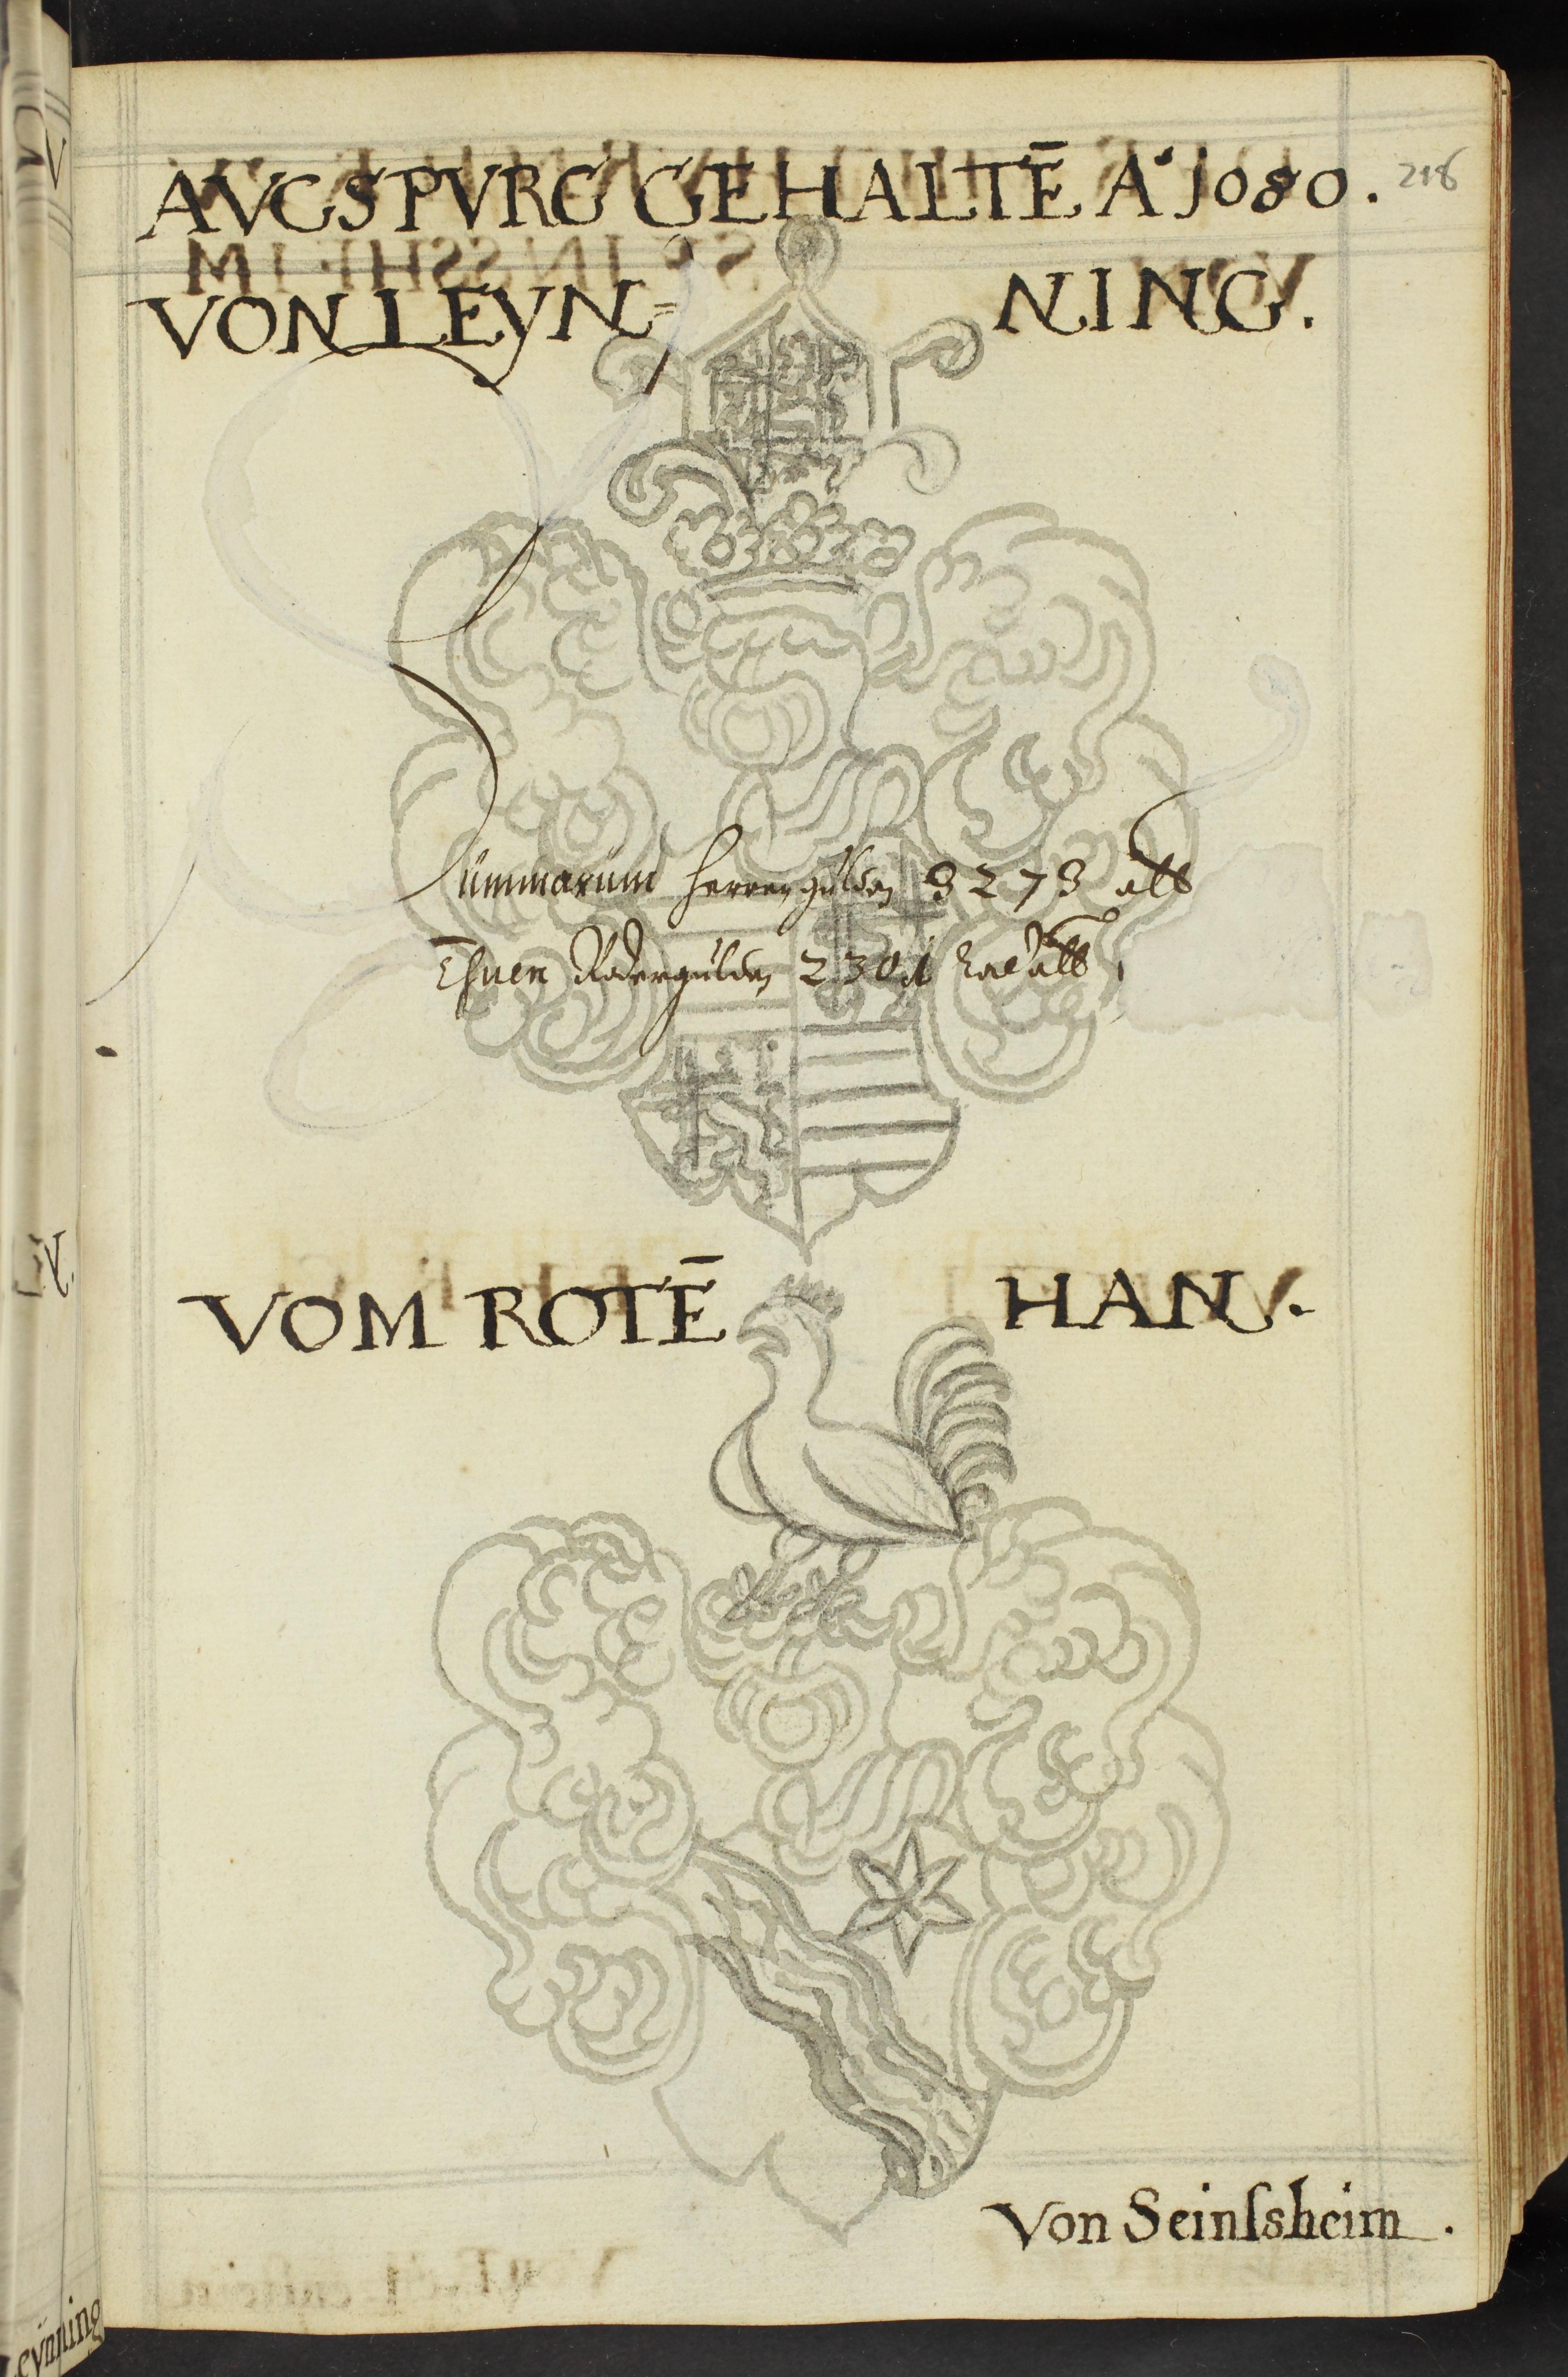 AVGSPVRG GEHALTĒ A° 1080. 218
VON LEYN= NING.
Summarum herren gulden 3273 alb
Thuen Rader gulden 2301 alb
VOM ROTĒ HAN.
Von Seinſsheim.
eynning